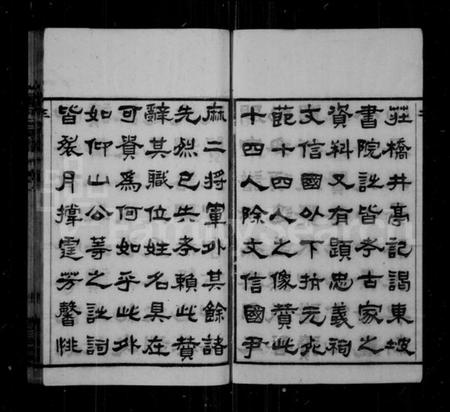 莊橋井亭記謁東坡
書院詩皆考古家之
資料又有題忠義祠
文信國以下拾元
範十四人之像贊此
十四人除文信國尹
麻二將軍外其餘諸
先烈已失考賴此贊
辭其職位姓名具在
可貴為何如乎此外
如仰山公等之詩詞
皆裂月撐霆芳馨